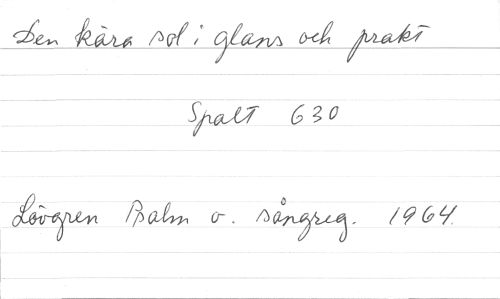 Den kära sol i glans och prakt
Spalt 630
Lövgren Psalm o. sångreg. 1964.